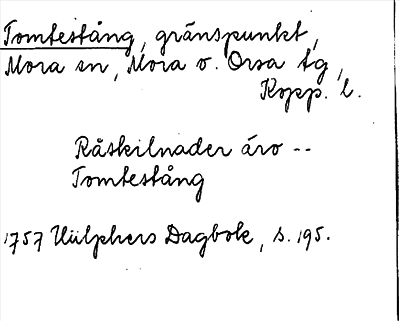 Tomtestång, gränspunkt,
Mora sn, Mora o. Orsa tg,
Kopp. l.
Råskilnader äro --
Tomtestång
1757 Hülphers Dagbok, s. 195.